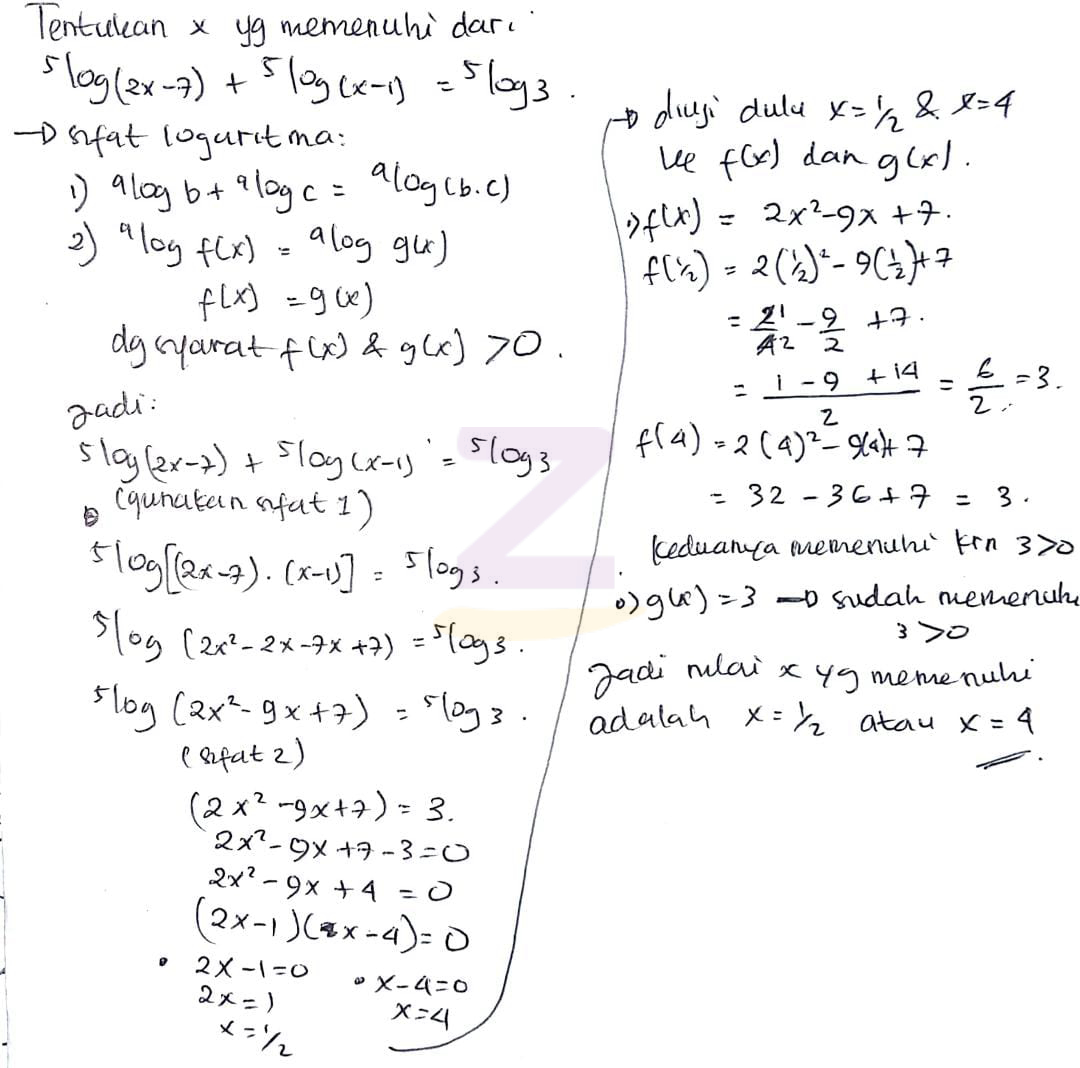 Tentukan x yg memenuhi dari
⁵log(2x-7) + ⁵log(x-1) = ⁵log3.
→ sifat logaritma:
1) ᵃlog b + ᵃlog c = ᵃlog(b.c)
2) ᵃlog f(x) = ᵃlog g(x)
f(x) = g(x)
dg syarat f(x) & g(x) > 0.
jadi:
⁵log(2x-7) + ⁵log(x-1) = ⁵log3
(gunakan sifat 1)
⁵log[(2x-7).(x-1)] = ⁵log3.
⁵log (2x²-2x-7x+7) = ⁵log3.
⁵log (2x²-9x+7) = ⁵log3.
(sifat 2)
(2x²-9x+7) = 3.
2x²-9x+7-3=0
2x²-9x+4 = 0
(2x-1)(x-4) = 0
• 2x-1=0 • x-4=0
2x=1 x=4
x=1/2
→ diuji dulu x=1/2 & x=4
ke f(x) dan g(x).
•) f(x) = 2x²-9x+7.
f(1/2) = 2(1/2)²-9(1/2)+7
= 2/4 - 9/2 + 7.
= (1-9+14)/2 = 6/2 = 3.
f(4) = 2(4)²-9(4)+7
= 32-36+7 = 3.
keduanya memenuhi krn 3>0
•) g(x) = 3 → sudah memenuhi
3>0
Jadi nilai x yg memenuhi
adalah x=1/2 atau x=4
Z